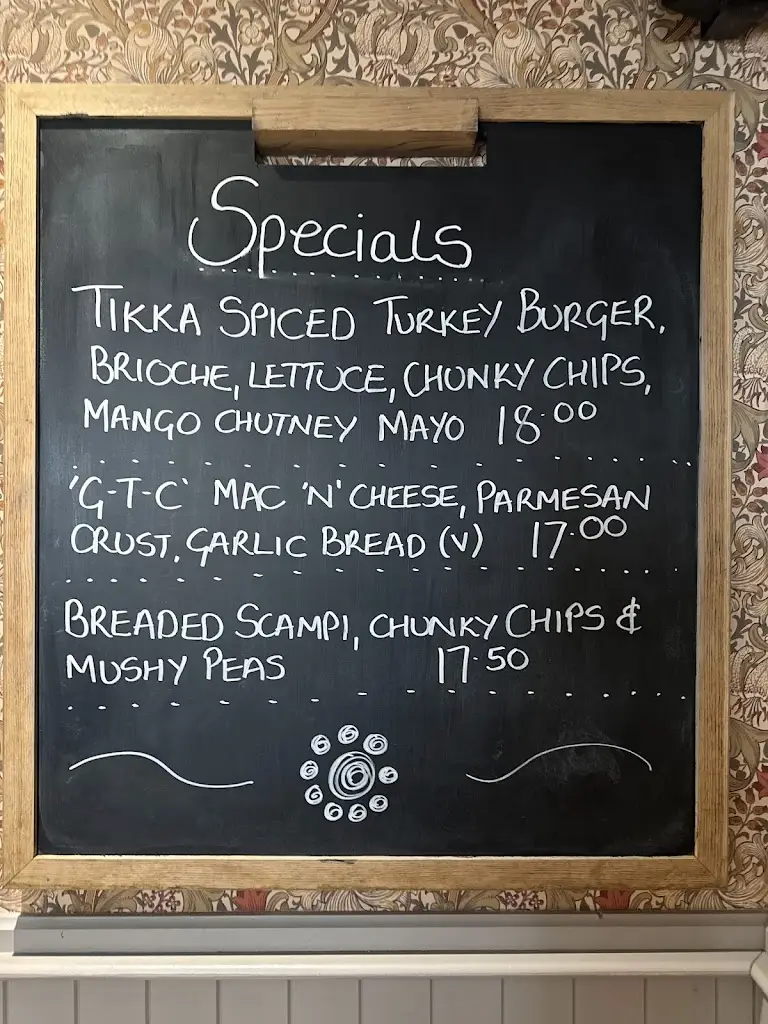 Specials
TIKKA SPICED TURKEY BURGER,
BRIOCHE, LETTUCE, CHUNKY CHIPS,
MANGO CHUTNEY MAYO 18.00
'G-T-C' MAC 'N' CHEESE, PARMESAN
CRUST, GARLIC BREAD (V) 17.00
BREADED SCAMPI, CHUNKY CHIPS &
MUSHY PEAS 17.50